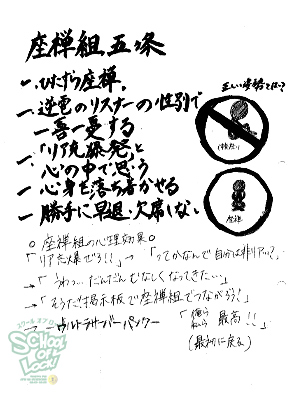 座禅組五ヶ条
一、ひたすら座禅。
一、逆電のリスナーの性別で
一喜一憂する
一、「リア充爆発」と
心の中で思う
一、心身を落ち着かせる
一、勝手に早退・欠席しない
正しい姿勢とは?
座禅
○座禅組の心理効果○
「リア充爆ぜろ!!」→「ってかなんで自分は非リア?」
→「うわっ…だんだんむなしくなってきた…」
→「そうだ!掲示板で座禅組でつながろう!」
→ ーウルトラサーバーパンクー
「俺ら 私ら 最高!!」
(最初に戻る)
スクールオブロック
SCHOOL OF LOCK!